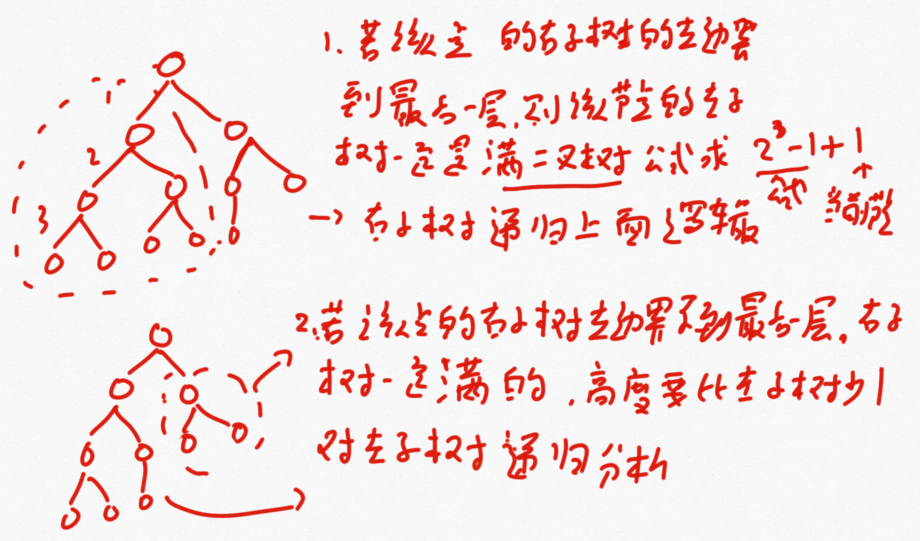 1. 若该点 的右子树的左边界
到最后一层,则该节点的左子
树一定是满二叉树 公式求 2³-1+1
2
3
公式 当前节点
→ 右子树递归上面逻辑
2. 若该点的右子树左边界不到最后一层,右子
树一定满的,高度要比左子树少1
对左子树递归分析